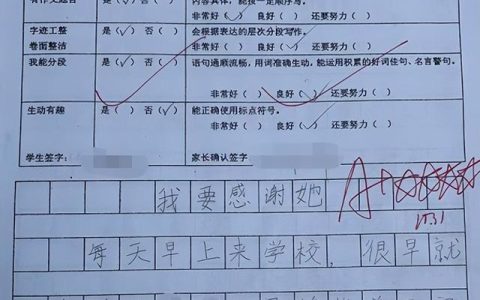 内容具体,能按一定顺序写。
是(√) 否( ) 非常好( ) 良好(√) 还要努力( )
字迹工整 卷面整洁 是(√) 否( ) 会根据表达的层次分段写作。
非常好( ) 良好(√) 还要努力( )
我能分段 是(√) 否( ) 语句通顺流畅,用词准确生动,能运用积累的好词佳句、名言警句。
非常好( ) 良好(√) 还要努力( )
生动有趣 是( ) 否(√) 能正确使用标点符号。
非常好( ) 良好(√) 还要努力( )
学生签字: 家长确认签字
我要感谢她
A+
每天早上来学校,很早就